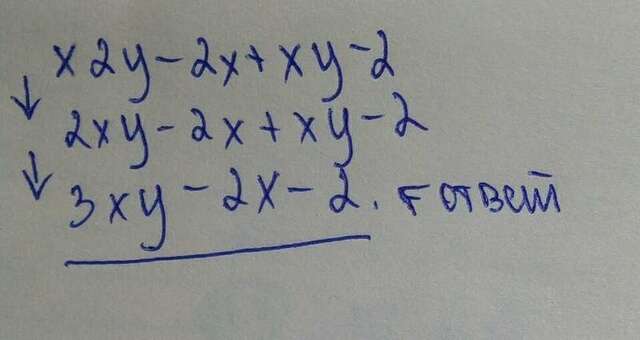 x2y-2x+xy-2
↓
2xy-2x+xy-2
↓
3xy-2x-2. ответ